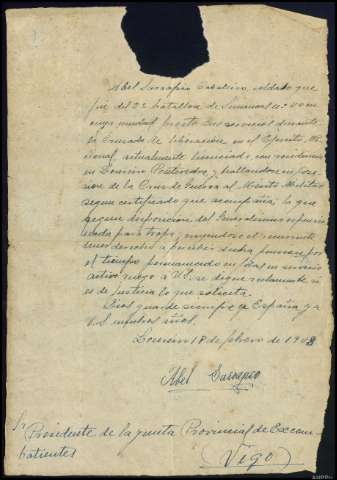 Abel Sarapio Caballero, soldado que
fué del 2º batallon de
cuya unidad presto sus servicios durante
la Cruzada de liberación en el Ejército Na-
cional, actualmente licenciado, con residencia
en Loureiro Pontevedra y hallandose en pose-
sión de la Cruz de Guerra al Mérito Militar
segun certificado que acompaña, lo que
segun disposición del Generalísimo es pensio-
nada para tropa, y
derecho a percibir dicha pension por
el tiempo permanecido en filas en servicio
activo ruego a V.E. se digne reclamarle si
es de justicia lo que solicita.
Dios guarde siempre a España y a
V.S. muchos años.
Loureiro 18 de febrero de 19
Abel Sarapio
Sr Presidente de la Junta Provincial de Excom-
batientes
(Vigo)